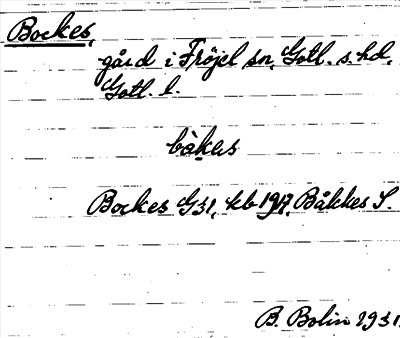 Bockes,
gård i Fröjel sn, Gotl. s. hd,
Gotl. l.
båkas
Bockes G31, kb 1917, Båkkes S.
B. Bolin 1931.